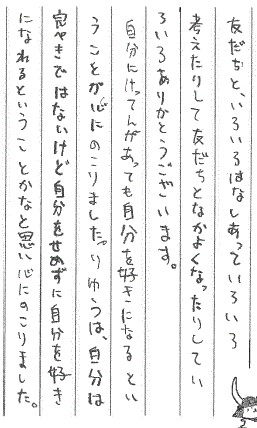 友だちと、いろいろはなしあっていろいろ
考えたりして友だちとなかよくなったりしてい
ろいろありがとうございます。
自分にけってんがあっても自分を好きになるとい
うことが心にのこりました。りゆうは、自分は
完ぺきではないけど自分をせめずに自分を好き
になれるということかなと思い心にのこりました。